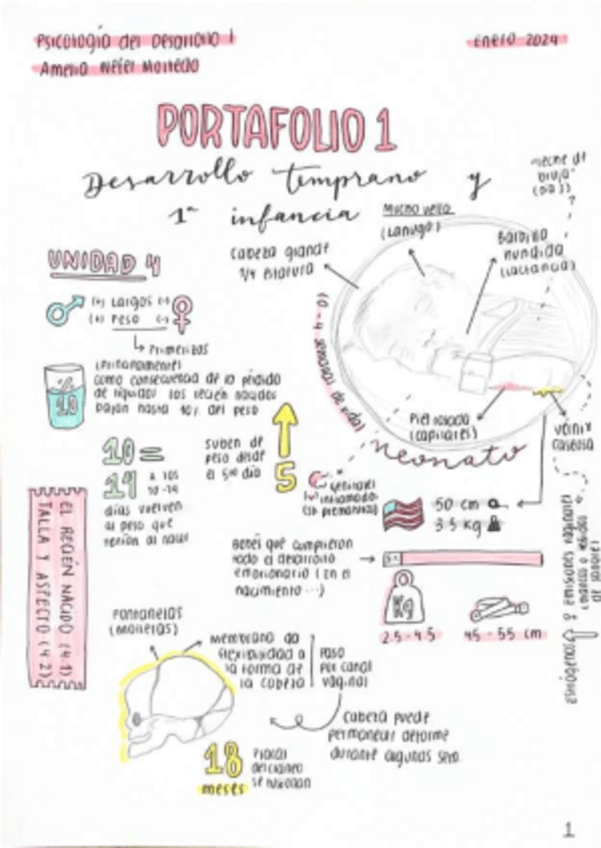 Psicología del Desarrollo I
enero 2024
Amelia
PORTAFOLIO 1
Desarrollo temprano y
1ª infancia
UNIDAD 4
(+) Largos (-)
(+) Peso (-)
Primerizos
(Principalmente)
como consecuencia de la pérdida
de líquidos los recién nacidos
bajan hasta 10% del peso
10
10 =
14
a los
10-14
días vuelven
al peso que
tenían al nacer
suben de
peso desde
el 5to día
5
EL RECIÉN NACIDO (4.1)
TALLA Y ASPECTO (4.2)
Cabeza grande
1/4 estatura
Mucho vello
(Lanugo)
Barbilla
hundida
(lactancia)
"leche de
bruja"
(0 - 4 semanas de vida)
Neonato
Piel rosada
(capilares)
vérnix
caseosa
genitales
50 cm
3.5 kg
Bebés que cumplieron
todo el desarrollo
embrionario (en el
nacimiento ...)
Kg
2.5 - 4.5
45 - 55 cm
estrógenos
emisiones vaginales
Fontanelas
(molleras)
Membrana da
flexibilidad a
la forma de
la cabeza
Paso
por canal
vaginal
Cabeza puede
permanecer deforme
durante algunas sem.
18
meses
Placas
del cráneo
se fusionan
1